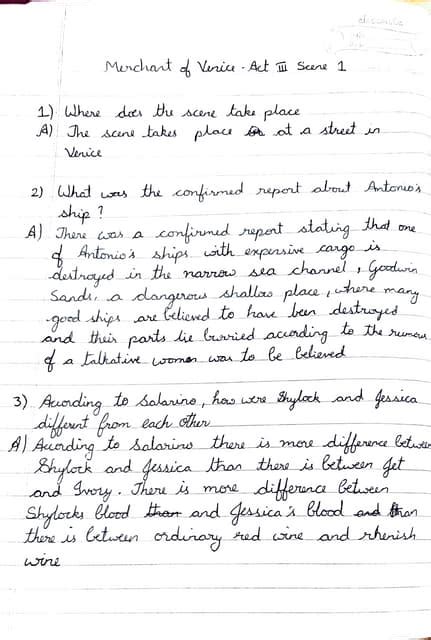 Merchant of Venice - Act III Scene 1
1) Where does the scene take place
A) The scene takes place at a street in
Venice
2) What was the confirmed report about Antonio's
ship?
A) There was a confirmed report stating that one
of Antonio's ships with expensive cargo is
destroyed in the narrow sea channel, Goodwin
Sands, a dangerous shallow place, where many
good ships are believed to have been destroyed
and their parts lie burried according to the rumour
of a talkative women was to be believed
3) According to Salarino, how were Shylock and Jessica
different from each other
A) According to Salarino there is more difference between
Shylock and Jessica than there is between Jet
and Ivory. There is more difference between
Shylocks blood than and Jessica's blood and than
there is between ordinary red wine and rhenish
wine